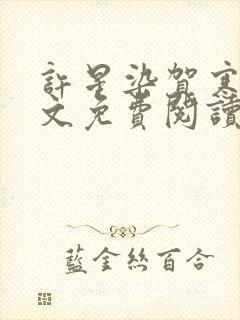 許星染賀寒
文免費閱讀
藍金絲百合